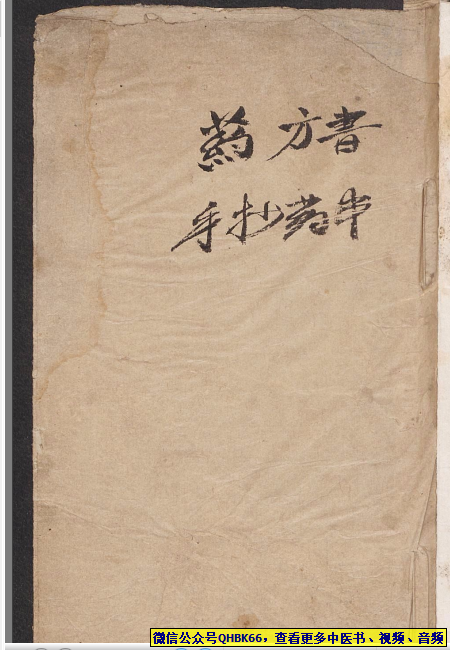 药方書
手抄药本
微信公众号QHBK66，查看更多中医书、视频、音频